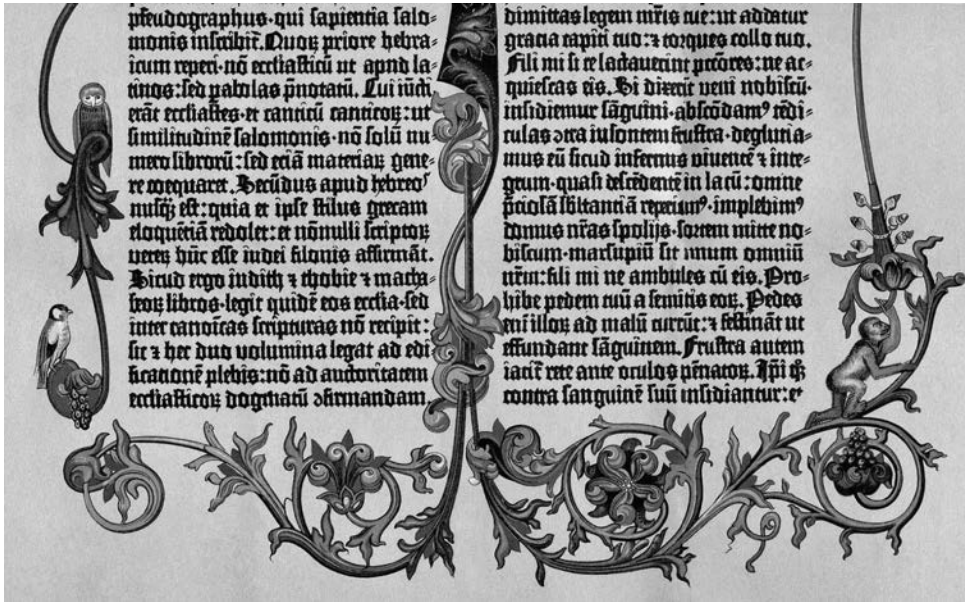 pseudographus·qui sapientia salo-
monis inscribit̃. Quoꝝ priorē hebra-
icum reperi·nō ecclīasticū ut apud la-
tinos: sed pabolas p̄notatū. Cui iūcti
erāt ecclīastes·et canticū canticoꝝ: ut
similitudinē salomonis·nō solū nu-
mero librorū: sed eciā materiaꝝ gene-
re coequaret. Secūdus apud hebreoꝰ
nusqꝫ est: quia et ipse stilus grecam
eloquētiā redolet: et nōnulli scriptoꝝ
vereꝝ hūc esse iudei filonis affirmāt.
Sicud ergo iudith ⁊ thobie ⁊ macha-
beoꝝ libros·legit quidē eos ecclīa·sed
inter canoīcas scripturas nō recipit:
sic ⁊ hec duo volumina legat ad edi-
ficationē plebis: nō ad auctoritatem
ecclīasticoꝝ dogmatū ↄfirmandam.
dimittas legem mr̄is tue: ut addatur
gracia capiti tuo: ⁊ torques collo tuo.
Fili mi si te lactaverint pctōres: ne ac-
quiescas eis. Si dixerīt veni nobiscū·
insidiemur sāguini·abscōdamꝰ tēdi-
culas ↄtra insontem frustra·deglutia-
mus eū sicud infernus viventē ⁊ inte-
grum·quasi descēdentē in lacū: omne
p̄ciosā sbstantiā reperiemꝰ·implebimꝰ
domus nr̄as spolijs·sortem mitte no-
biscum·marsupiū sit unum omniū
nr̄m: fili mi ne ambules cū eis. Pro-
hibe pedem tuū a semitis eoꝝ. Pedes
eni illoꝝ ad malū currūt: ⁊ festināt ut
effundant sāguinem. Frustra autem
iacit̃ rete ante oculos pēnatoꝝ. Ip̄i qꝫ
contra sanguinē suū insidiantur: et